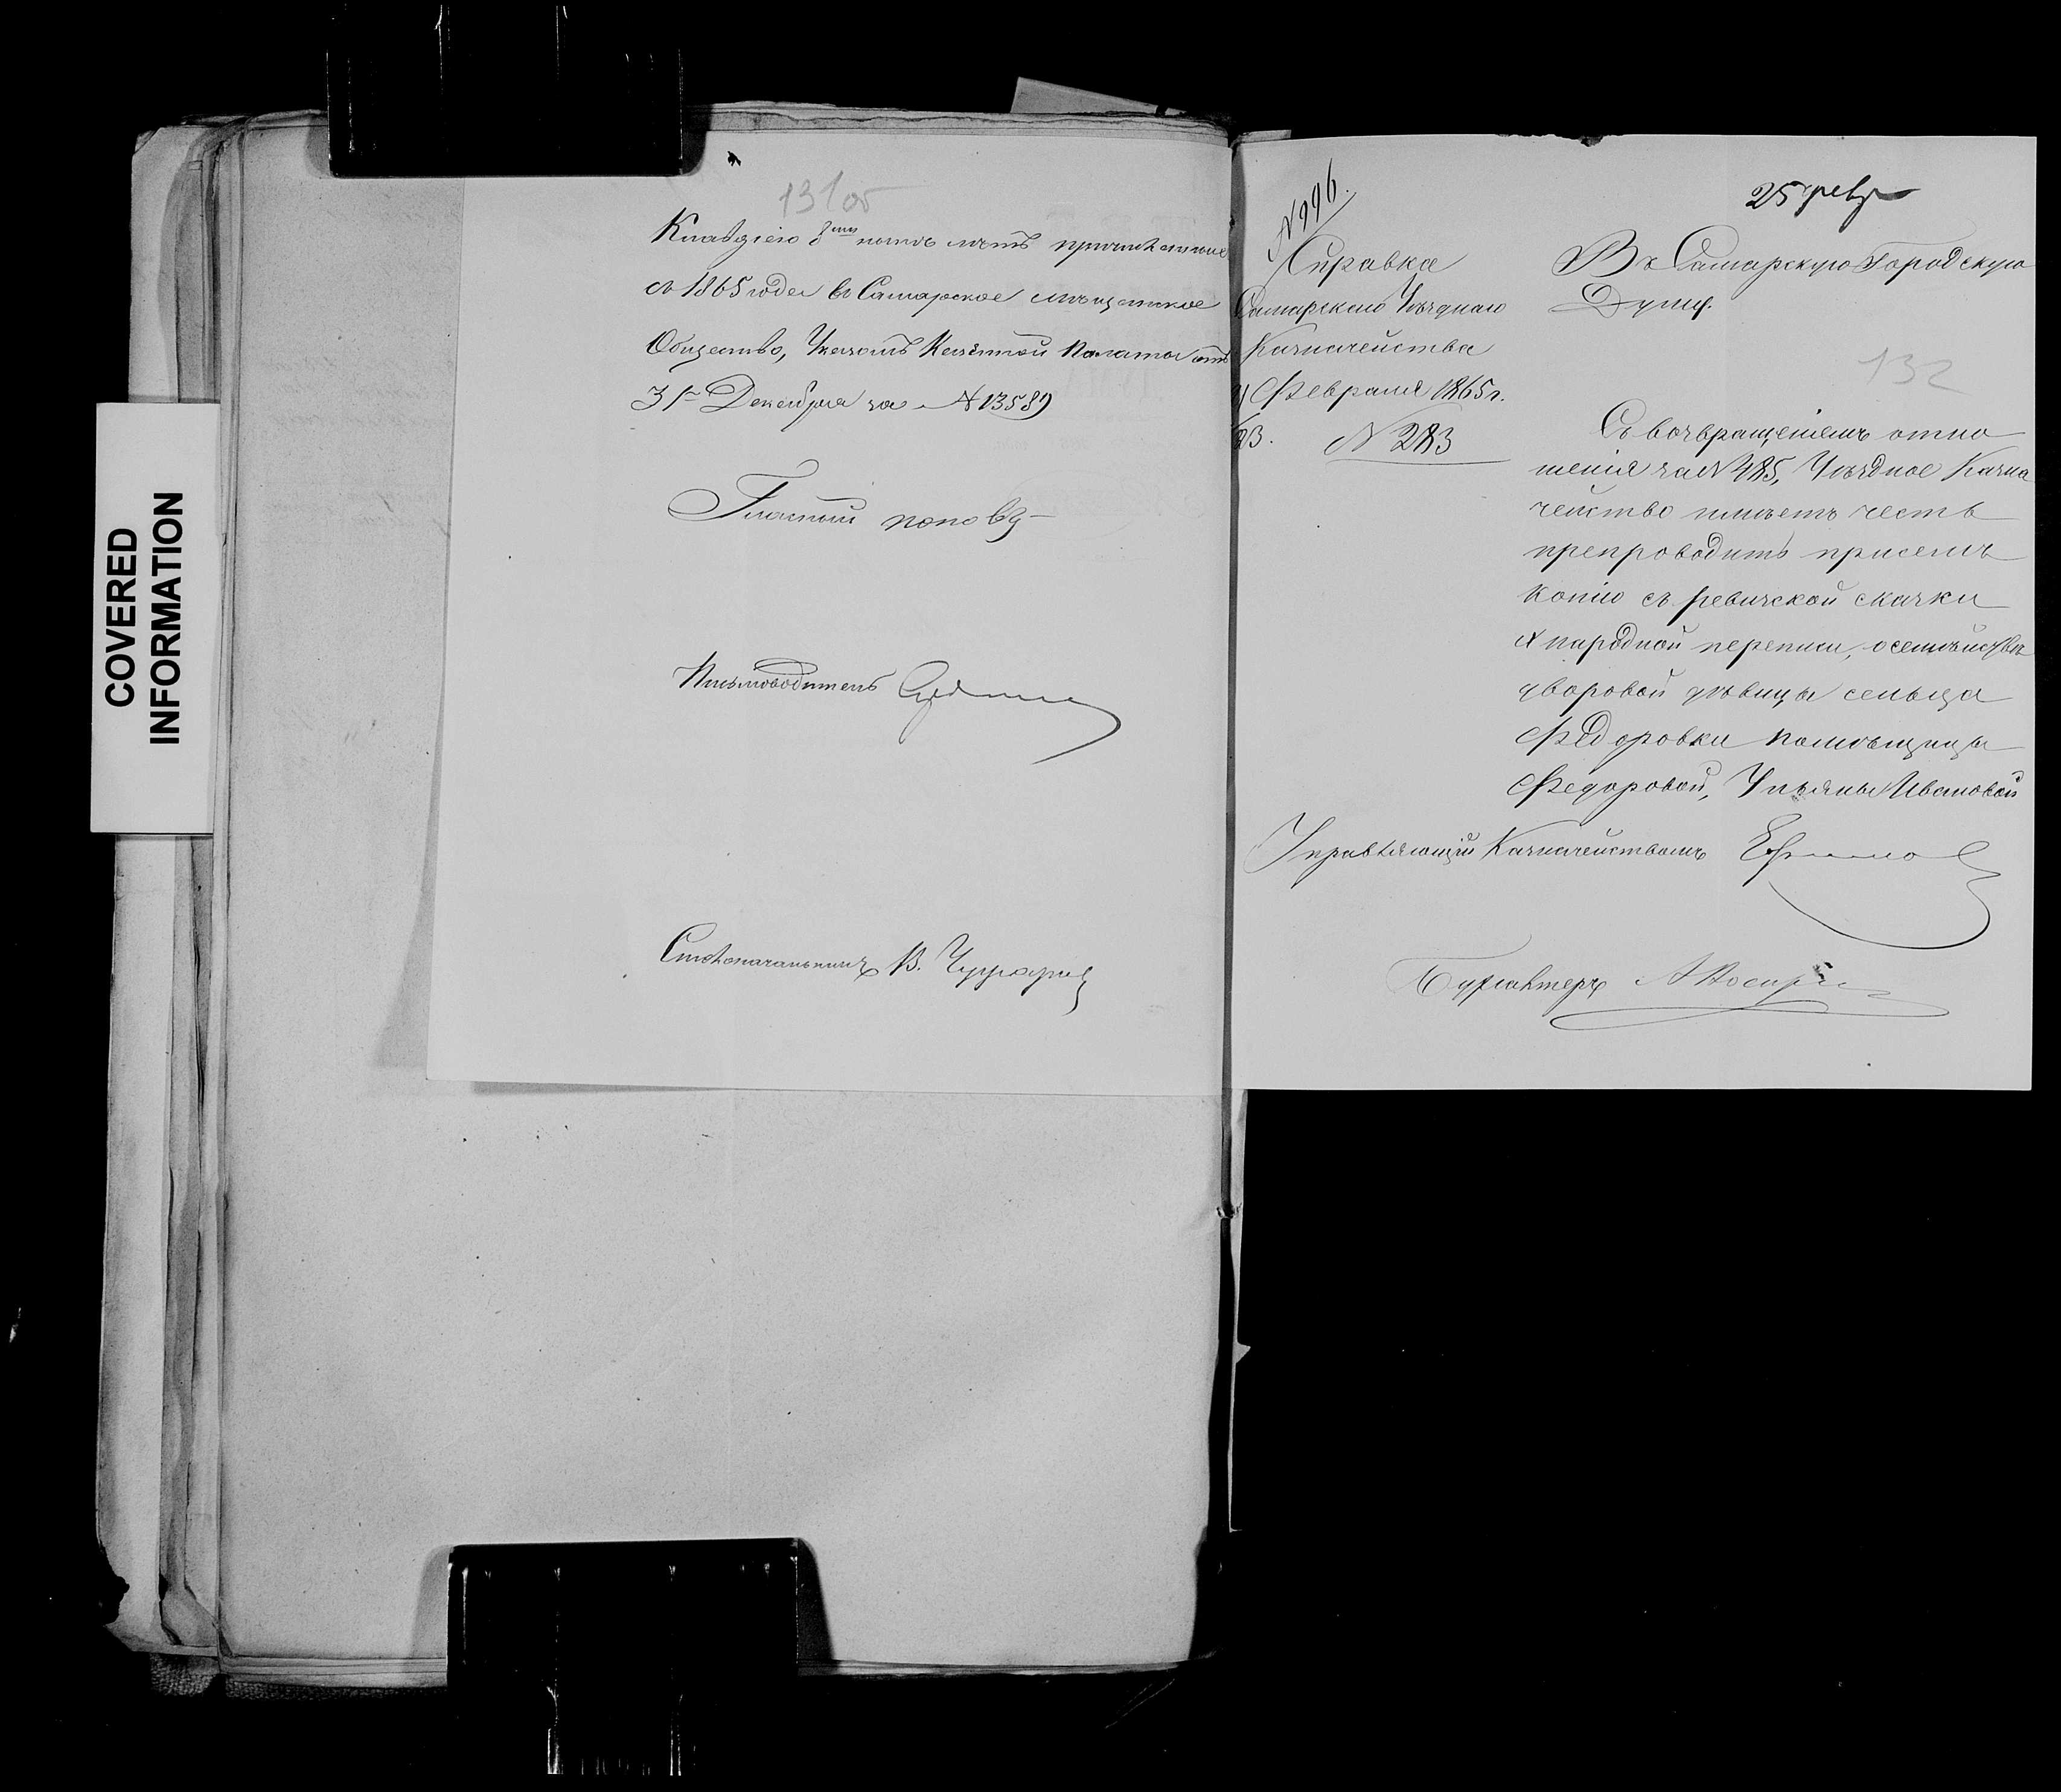 COVERED
INFORMATION
131 об
Клавдіею 8ми полов. лѣтъ причислены
съ 1865 года въ Самарское мѣщанское
Общество, Указомъ Казенной Палаты отъ
31го Декабря за № 13589
Гласный Поповъ
Письмоводитель
Столоначальникъ В.
№996.
25 февр
Справка
Самарскаго Уѣзднаго
Казначейства
Февраля 1865 г.
№ 283
Въ Самарскую Городскую
Думу.
132
Съ возвращеніемъ отно
шенія за № 485, Уѣздное Казна
чейство имѣетъ честь
препроводить присемъ
копію съ ревизской сказки
X народной переписи, о семѣйствѣ
дворовой дѣвицы сельца
Федоровки помѣщицы
Федоровой, Ульяны Ивановой
Управляющій Казначействомъ
Бухгалтеръ